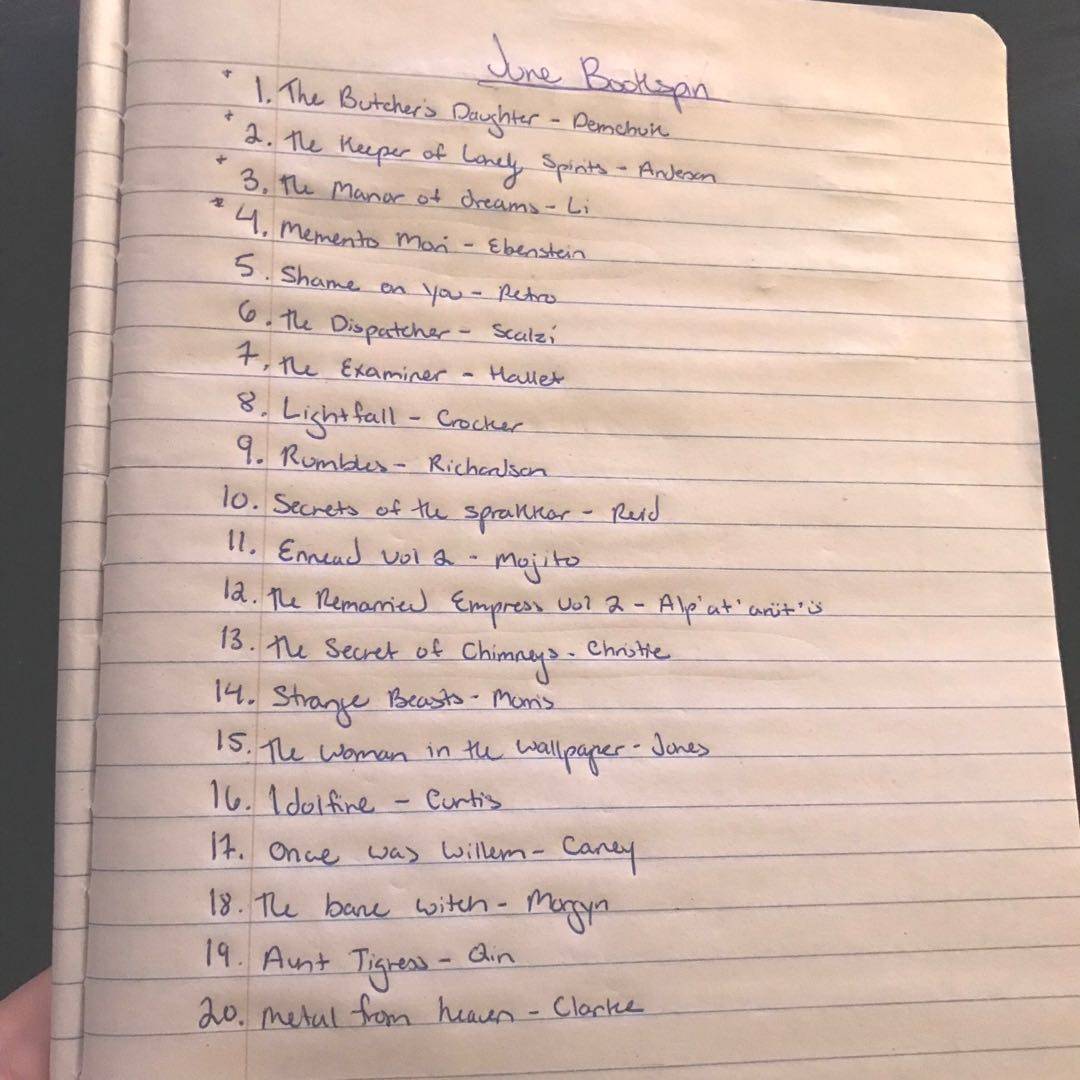 June Bookspin
* 1. The Butcher's Daughter - Demchuk
* 2. the Keeper of Lonely Spirits - Anderson
* 3. the Manor of dreams - Li
* 4. Memento Mori - Ebenstein
5. Shame on You - Petro
6. the Dispatcher - Scalzi
7. the Examiner - Hallet
8. Lightfall - Crocker
9. Rumbles - Richardson
10. Secrets of the sprakkar - Reid
11. Ennead vol 2 - Mojito
12. the Remarried Empress vol 2 - Alp'at'arüt'ü
13. the Secret of Chimneys - Christie
14. Strange Beasts - Morris
15. The Woman in the Wallpaper - Jones
16. Idolfire - Curtis
17. Once was Willem - Carey
18. The bane witch - Morgyn
19. Aunt Tigress - Qin
20. metal from heaven - Clarke